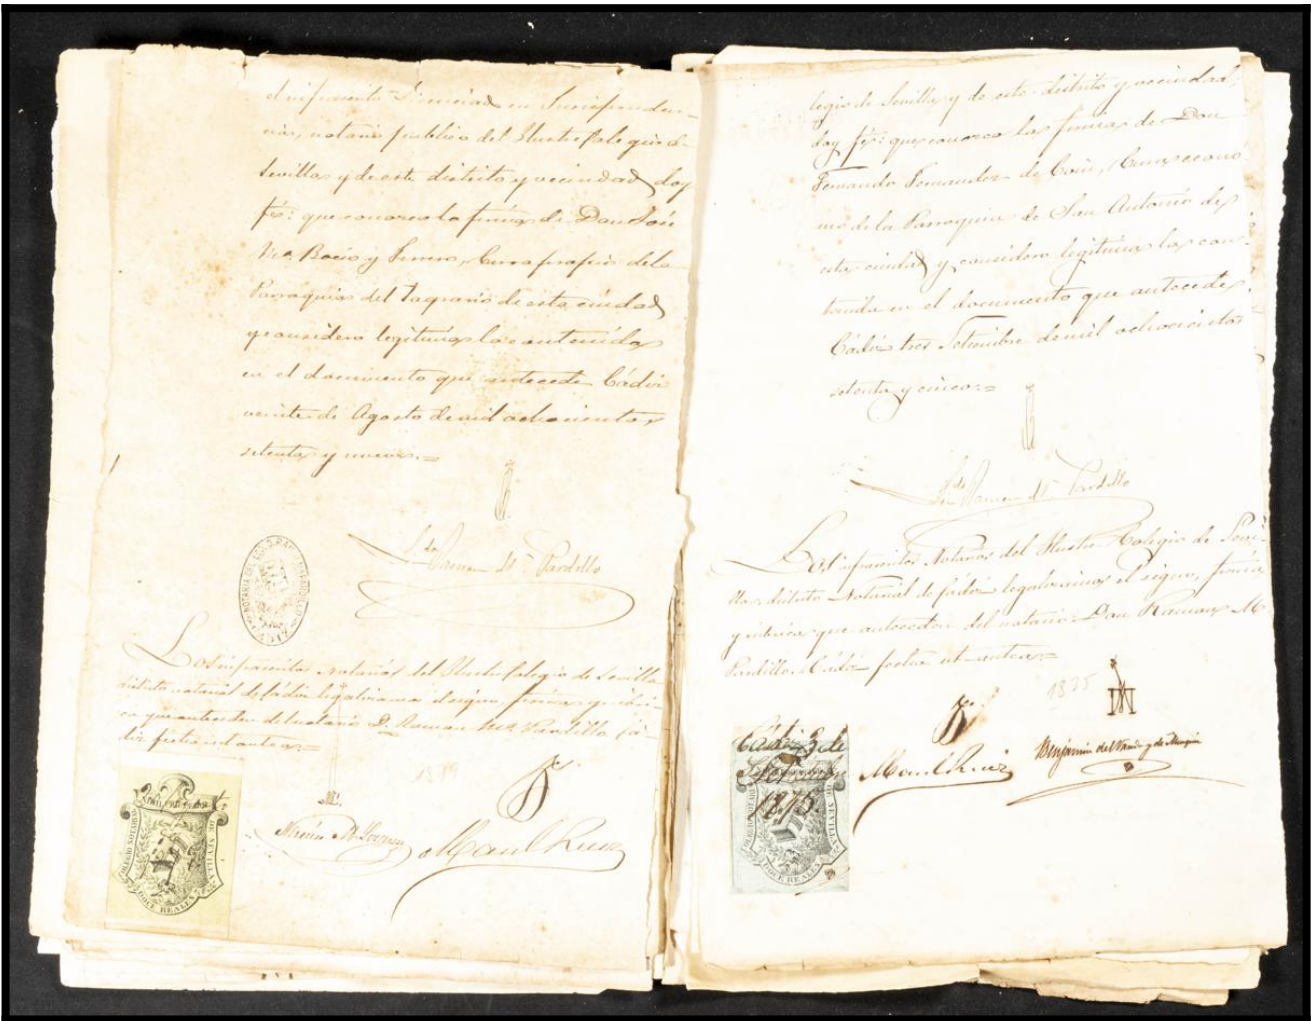 el infrascrito Licenciado en Jurispruden-
cia, notario publico del Ilustre Colegio de
Sevilla y de este distrito y vecindad doy
fé: que conozco la firma de Don José
Mª Bocio y Ferrero, Cura propio de la
Parroquia del Sagrario de esta ciudad
y considero legitima la contenida
en el documento que antecede Cádiz
veinte de Agosto de mil ochocientos
setenta y nueve.=
Ldo Ramon Mª Pardillo
NOTARIA DEL LCDO.
CADIZ
Los infrascritos notarios del Ilustre Colegio de Sevilla
distrito notarial de Cádiz legalizamos el signo, firma y rúbri-
ca que anteceden del notario D. Ramon Mª Pardillo Cá-
diz fecha ut antea.=
1879
COLEGIO NOTARIAL
DE SEVILLA
DOCE REALES
Manl Ruiz
legio de Sevilla y de este distrito y vecindad,
doy fé: que conozco la firma de Don
Fernando Fernandez de Coric, Cura econó
mo de la Parroquia de San Antonio de
esta ciudad y considero legitima la con-
tenida en el documento que antecede,
Cádiz tres Setiembre de mil ochocientos
setenta y cinco.=
Ldo Ramon Mª Pardillo
Los infrascritos Notarios del Ilustre Colegio de Sevi-
lla, distrito Notarial de Cádiz legalizamos el signo, firma
y rúbrica que anteceden del notario Don Ramon M
Pardillo. Cádiz fecha ut antea=
1875
Cádiz 3 de
Setiembre
1875
COLEGIO NOTARIAL
DE SEVILLA
DOCE REALES
Manl Ruiz
Benjamin del